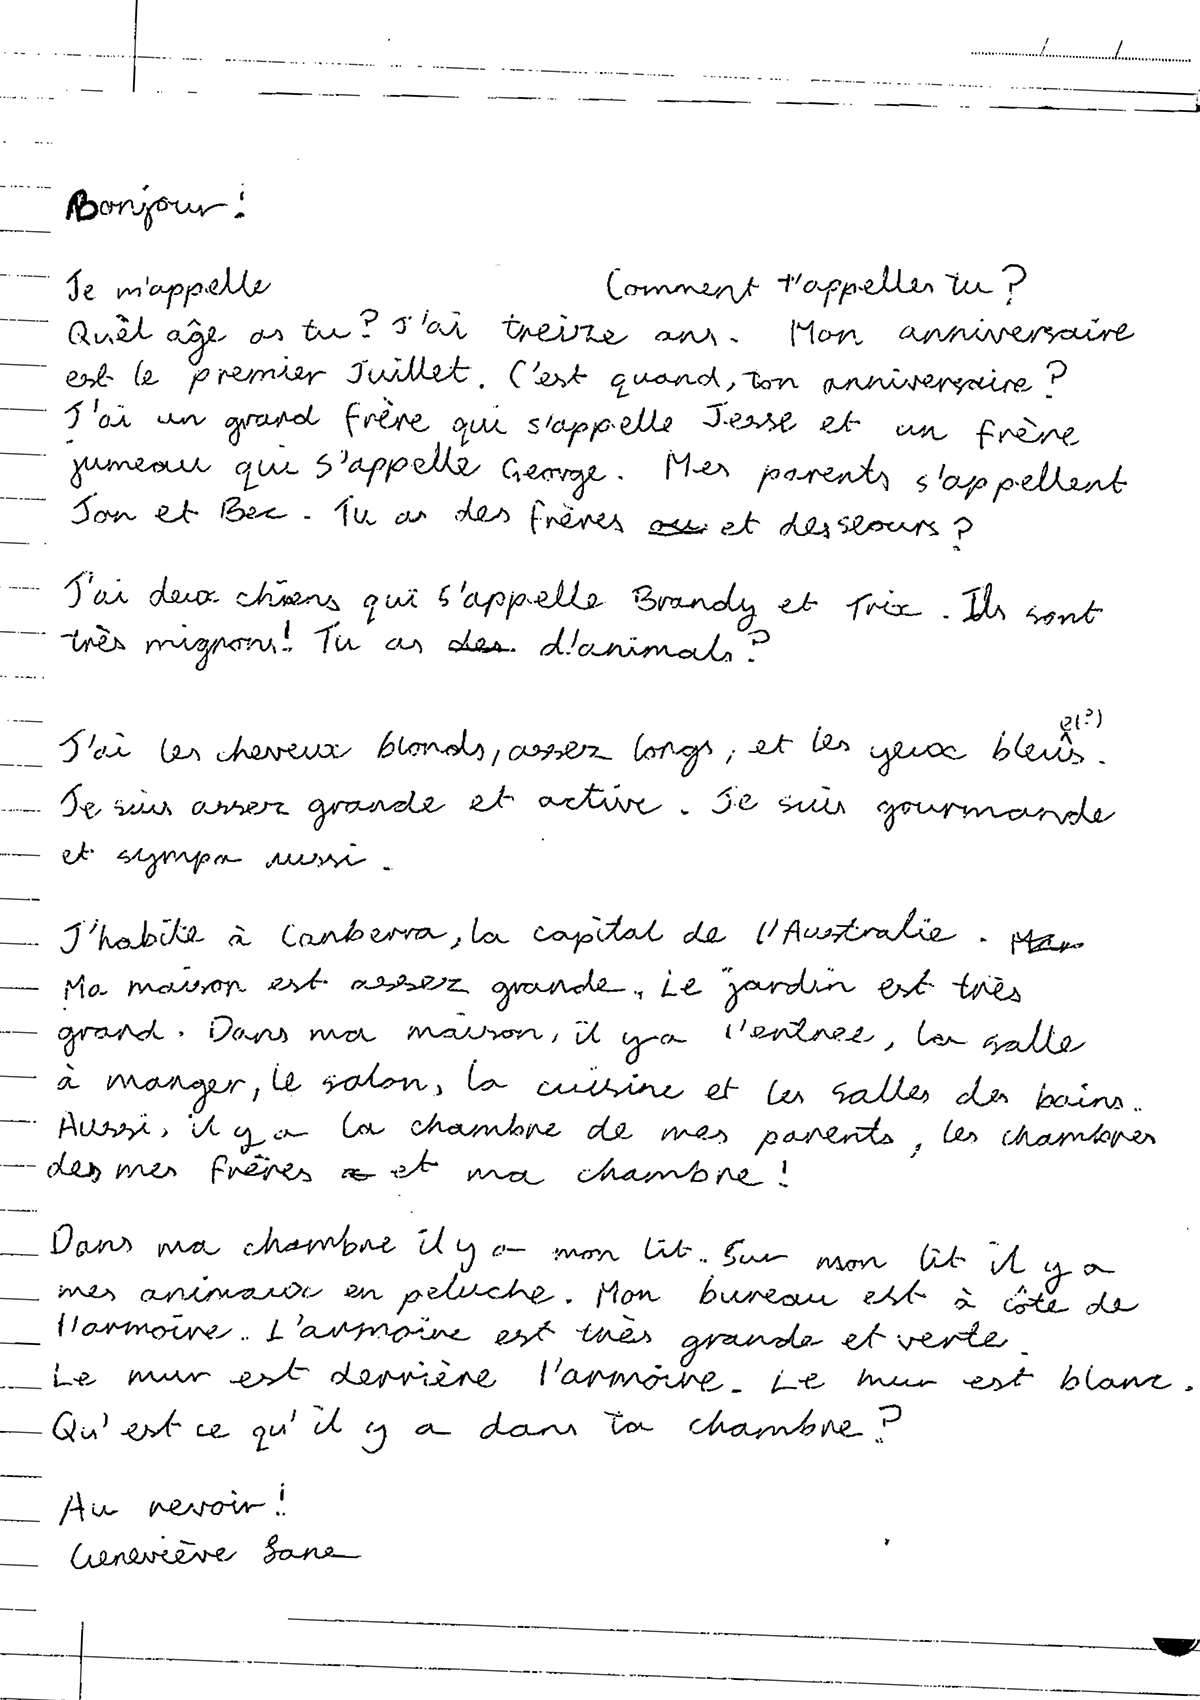 Bonjour!
Je m'appelle Comment t'appelles tu?
Quêl âge as tu? J'ai treize ans. Mon anniversaire
est le premier Juillet. C'est quand, ton anniversaire?
J'ai un grand frère qui s'appelle Jesse et un frère
jumeau qui s'appelle George. Mes parents s'appellent
Jon et Bec. Tu as des frères ou et des seours?
J'ai deux chiens qui s'appelle Brandy et Trix. Ils sont
très mignons! Tu as des d'animals?
e(?)
J'ai les cheveux blonds, assez longs, et les yeux bleus.
Je suis assez grande et active. Je suis gourmande
et sympa aussi.
J'habite à Canberra, la capital de l'Australie.
Ma maison est assez grande. Le jardin est très
grand. Dans ma maison, il y a l'entree, la salle
à manger, le salon, la cuisine et les salles des bains.
Aussi, il y a la chambre de mes parents, les chambres
des mes frères et ma chambre!
Dans ma chambre il y a mon lit. Sur mon lit il y a
mes animaux en peluche. Mon bureau est à côte de
l'armoire. L'armoire est très grande et verte.
Le mur est derrière l'armoire. Le mur est blanc.
Qu'est ce qu'il y a dans ta chambre?
Au revoir!
Geneviève Lane